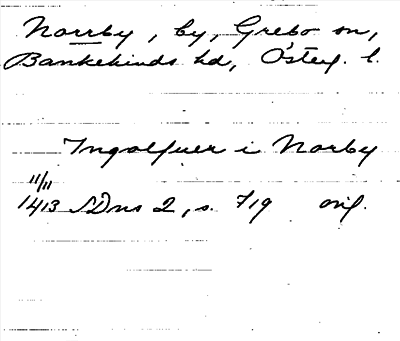 Norrby, by, Grebo sn,
Bankekinds hd, Östergl. l.
Ingolfuer i Norby
11/11
1413 SDns 2, s. 719 orig.